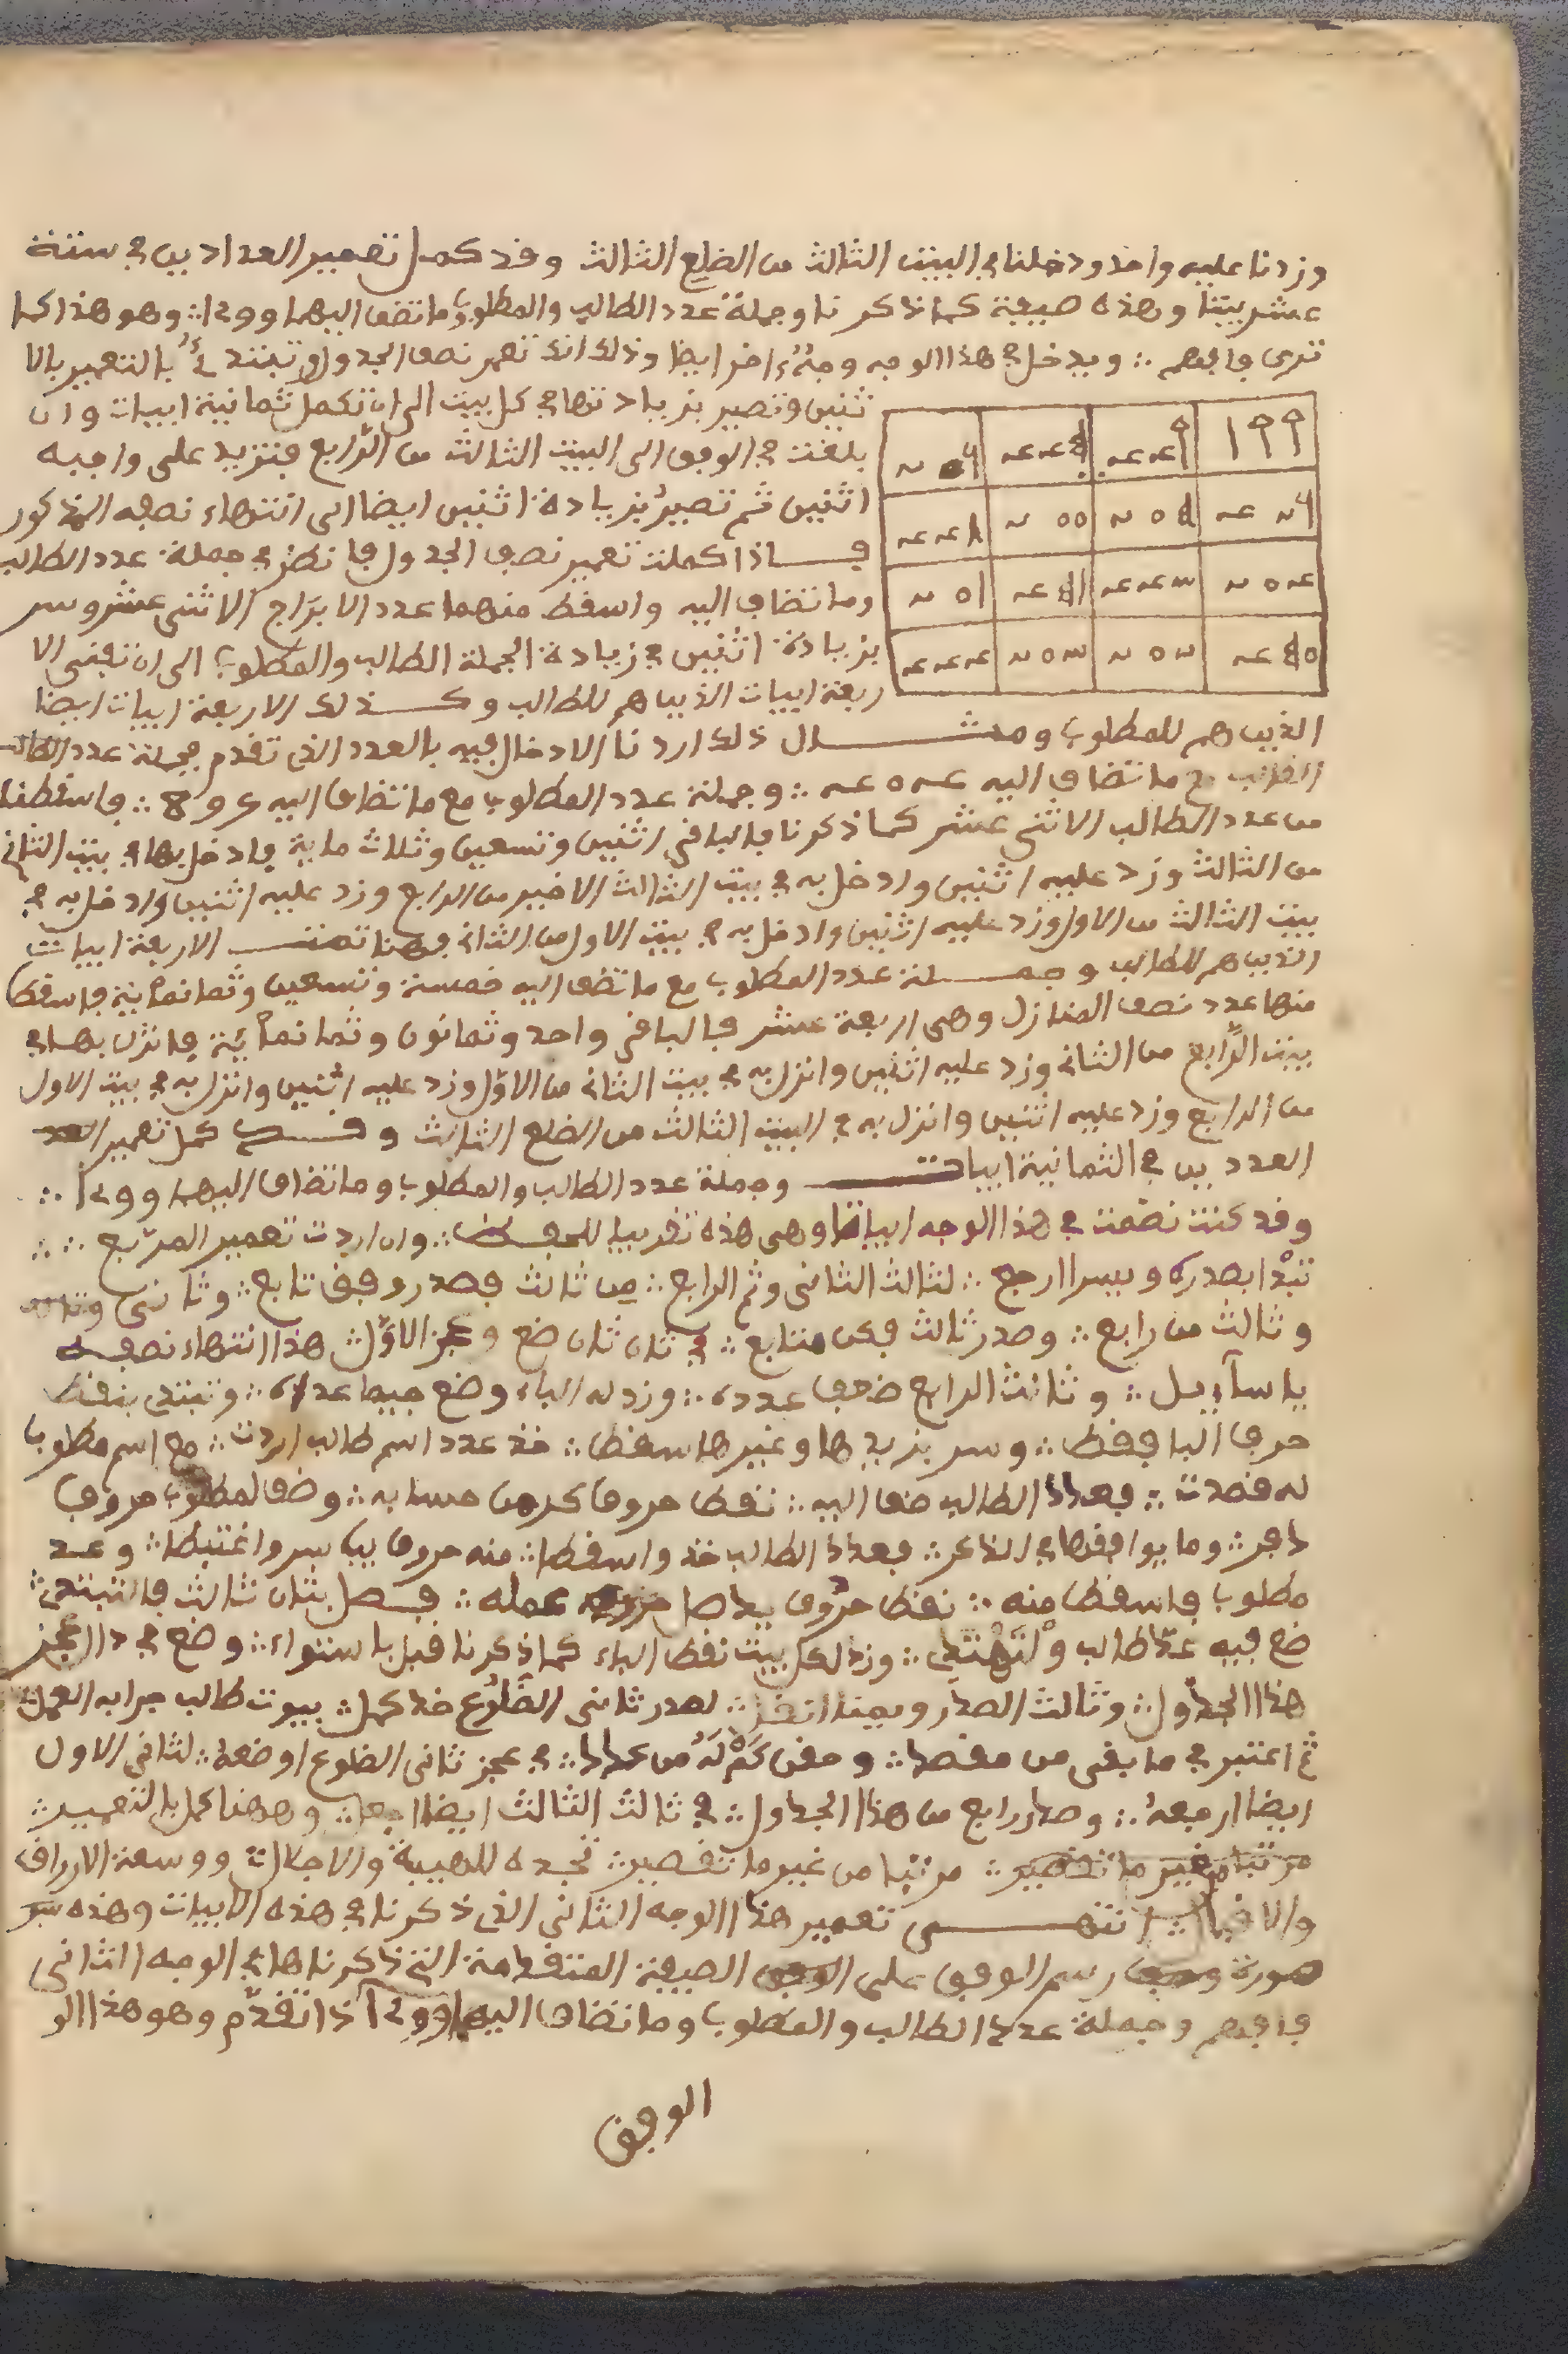 وزدنا عليه واحد ودخلنا في البيت الثالث من الضلع الثالث وقد كمل تعمير العدادين في ستة
عشر بيتا وهذه صيغة كما ذكرنا وجملة عدد الطالب والمطلوب وما تضف اليهما وهو هذا كما
ترى فافهم ∴ ويدخل في هذا الوجه وجهٌ اخر ايضا وذلك انك تعمر نصف الجدول وتبتدئُ بالتعمير بالا
ثنين وتصير بزيادتها في كل بيت الى ان تكمل ثمانية ابيات وان
بلغت في الوفق الى البيت الثالث من الرّابع فتزيد على واجبه
اثنين ثم تصير بزيادة اثنين ايضا الى انتهاء نصفه المذكور
فاذا كملت تعمير نصف الجدول فانظر في جملة عدد الطالب
وما تضاف اليه واسقط منهما عدد الابراج الاثنى عشر وسر
بزيادة اثنين في زيادة الجملة الطالب والمطلوب الى ان تفنى الا
ربعة ابيات الذين هم للطالب وكذلك الاربعة ابيات ايضا
الذين هم للمطلوب ومثال ذلك اردنا الادخال فيه بالعدد الذى تقدم جملة عدد الطالب
مع ما تضاف اليه ∴ وجملة عدد المطلوب مع ما تضاف اليه ∴ فاسقطنا
من عدد الطالب الاثنى عشر كما ذكرنا فالباقى اثنين وتسعين وثلاث ماية فادخل بها في بيت الثانى
من الثالث وزد عليه اثنين وادخل به في بيت الثالث الاخير من الرابع وزد عليه اثنين وادخل به في
بيت الثالث من الاول وزد عليه اثنين وادخل به في بيت الاول من الثانى فهنا تمت الاربعة ابيات
الذين هم للطالب وجملة عدد المطلوب مع ما تضف اليه خمسة وتسعين وثمانمائة فاسقط
منها عدد نصف المنازل وهى اربعة عشر فالباقى واحد وثمانون وثمانمائة فانزل بها في
بيت الرّابع من الثانى وزد عليه اثنين وانزل به في بيت الثانى من الاوّل وزد عليه اثنين وانزل به في بيت الاول
من الرابع وزد عليه اثنين وانزل به في البيت الثالث من الضلع الثالث وقد كمل تعمير
العددين في الثمانية ابيات وجملة عدد الطالب والمطلوب وما تضاف اليهما ∴
وقد كنت نظمت في هذا الوجه ابياتا وهى هذه تقريبا للحفظ ∴ وان اردت تعمير المربّع ∴
تبْدا بصدره ويسرا ارجع ∴ لثالث الثانى وثم الرابع ∴ من ثالث فصدر وفق تابع ∴ وثانى
وثالث من رابع ∴ وصدر ثالث فكن متابع ∴ في ثان ثان ضع وعجز الاوّل ∴ هذا انتهاء نصفه
يا سآءيل ∴ وثالث الرابع ضعف عدده ∴ وزد له الباء وضع جيما عدده ∴ وتبتدى بنقط
حرف البا فقط ∴ وسر بزيدها وغيرها سقط ∴ خذ عدد اسم طالب اردت ∴ مع اسم مطلوب
له قصدت ∴ فعدد الطالب ضف اليه ∴ نقط حروف كر من حسابه ∴ وضف لمطلوب حروف
دفر ∴ وما يوافقها في الذكر ∴ فعدد الطالب خذ واسقطا ∴ منه حروف يب سر واغتبطا ∴ وعد
مطلوب فاسقط منه ∴ نقط حروف يد عمله ∴ فصل بثان ثالث فالتبتدى ∴
ضع فيه عدّ طالب ولْتهْتدى ∴ وزد لكل بيت نقط الباء كما ذكرنا قبل باستواء ∴ وضع في دا العجز
هذا الجدول ∴ وثالث الصدر ∴ لصدر ثانى الضّلُوع خذ كمل ∴ بيوت طالب جرا به العمل
ثم اعتبر في ما بقى من مقصد ∴ في عجز ثانى الضلوع اوضعهُ ∴ لثانى الاول
ايضا ارفعهُ ∴ وصدر رابع من هذا الجدول ∴ في ثالث الثالث ايضا ∴ وههنا كمل بالتعمير ∴
مرتبا من غير ما تقصير ∴ تجده للهيبة والاجلال ∴ ووسعة الارزاق
والاقبال ∴ انتهى تعمير هذا الوجه الثانى الذى ذكرنا في هذه الابيات وهذه
صورة رسم الوفق على الصيغة المتقدمة التى ذكرناها في الوجه الثانى
فافهم وجملة عدد الطالب والمطلوب وما تضاف اليهما اذا تقدّم وهو هذا الو
الوفق